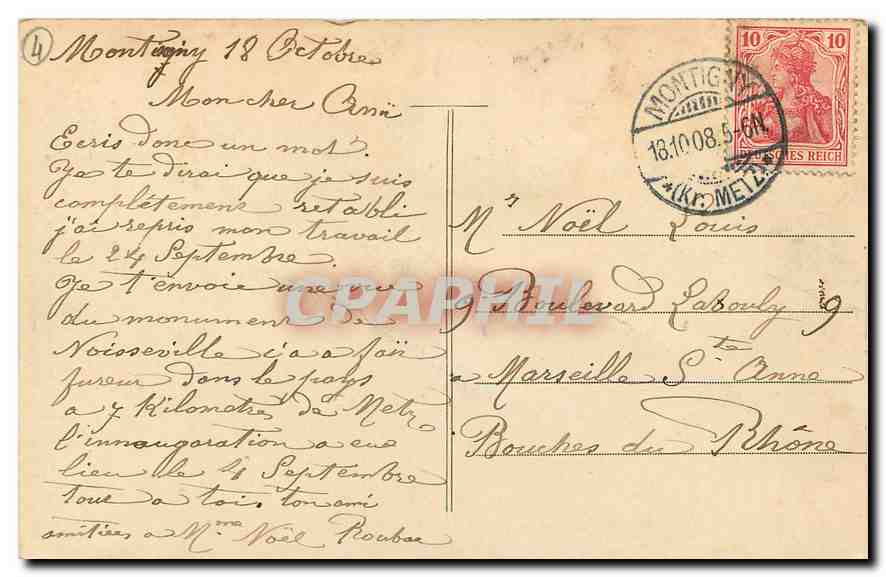 4
Montigny 18 Octobre
Mon cher Ami
Ecris donc un mot.
Je te dirai que je suis
complétement retabli
j'ai repris mon travail
le 24 Septembre.
Je t'envoie une vue
du monument de
Noisseville ça a fait
fureur dans le pays
a 7 Kilometres de Metz
l'innaugoration a eue
lieu le 4 Septembre
tout a toi. ton ami
amitiées a Mme Noël Roubae
10 10
DEUTSCHES REICH
MONTIGNY
18.10.08.5-6N.
*(Kr. METZ)*
Mr Noël Louis
9 Boulevard Labouly 9
a Marseille Ste Anne
Bouches du Rhône
CPAPHIL